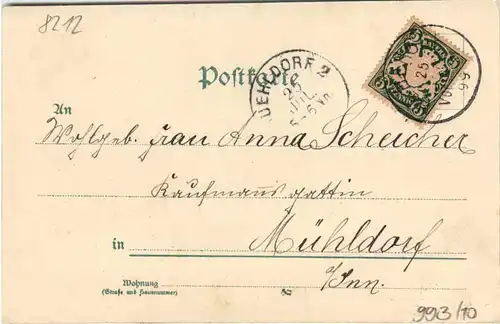 8212
Postkarte
MUEHLDORF 2
25
JUL
5-6 Vm.
BAYERN
5 PFENNIG 5
25
99
An
Wohlgeb. Frau Anna Scheicher
Kaufmannsgattin
in Mühldorf
a/Inn.
Wohnung
(Straße und Hausnummer)
993/10